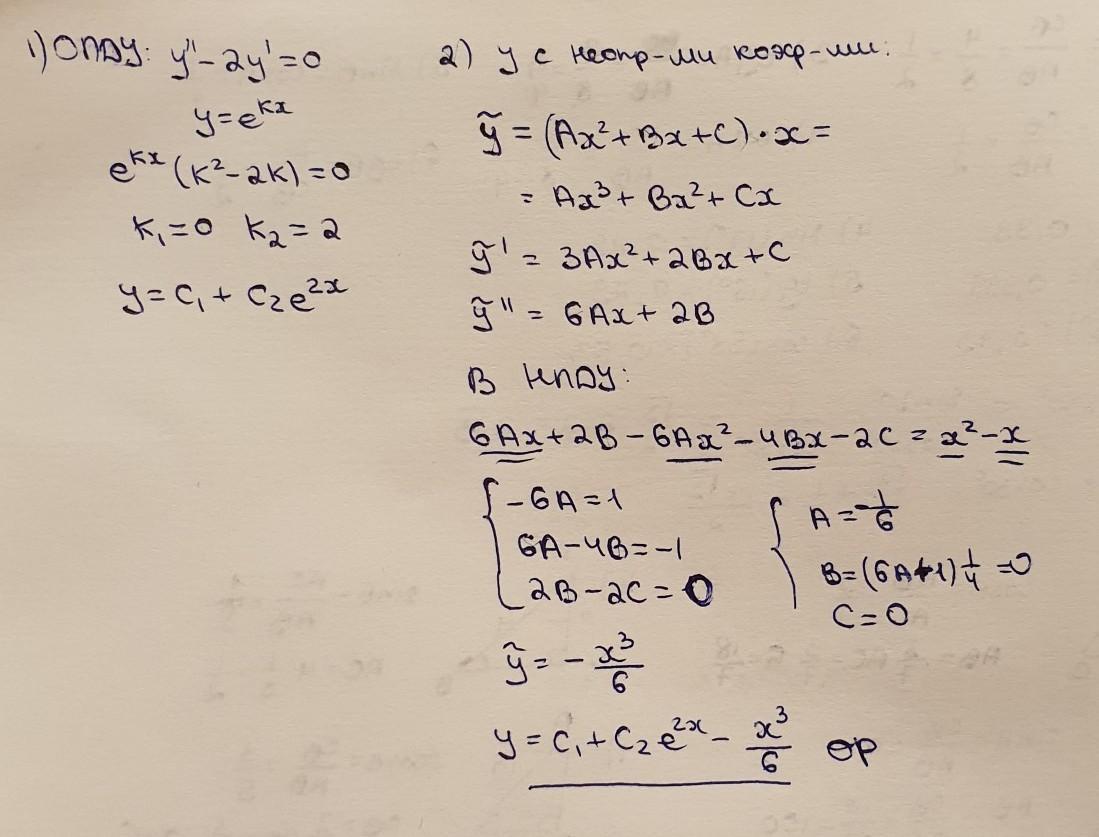 1) ОЛДУ: y'' - 2y' = 0
y = e^{kx}
e^{kx} (k² - 2k) = 0
k₁ = 0 k₂ = 2
y = C₁ + C₂e^{2x}
2) У с неопр-ми коэф-ми:
ỹ = (Ax² + Bx + C) · x =
= Ax³ + Bx² + Cx
ỹ' = 3Ax² + 2Bx + C
ỹ'' = 6Ax + 2B
В НЛДУ:
6Ax + 2B - 6Ax² - 4Bx - 2C = x² - x
{ -6A = 1
6A - 4B = -1
2B - 2C = 0
{ A = -1/6
B = (6A + 1) 1/4 = 0
C = 0
ỹ = - x³/6
y = C₁ + C₂e^{2x} - x³/6 ОР